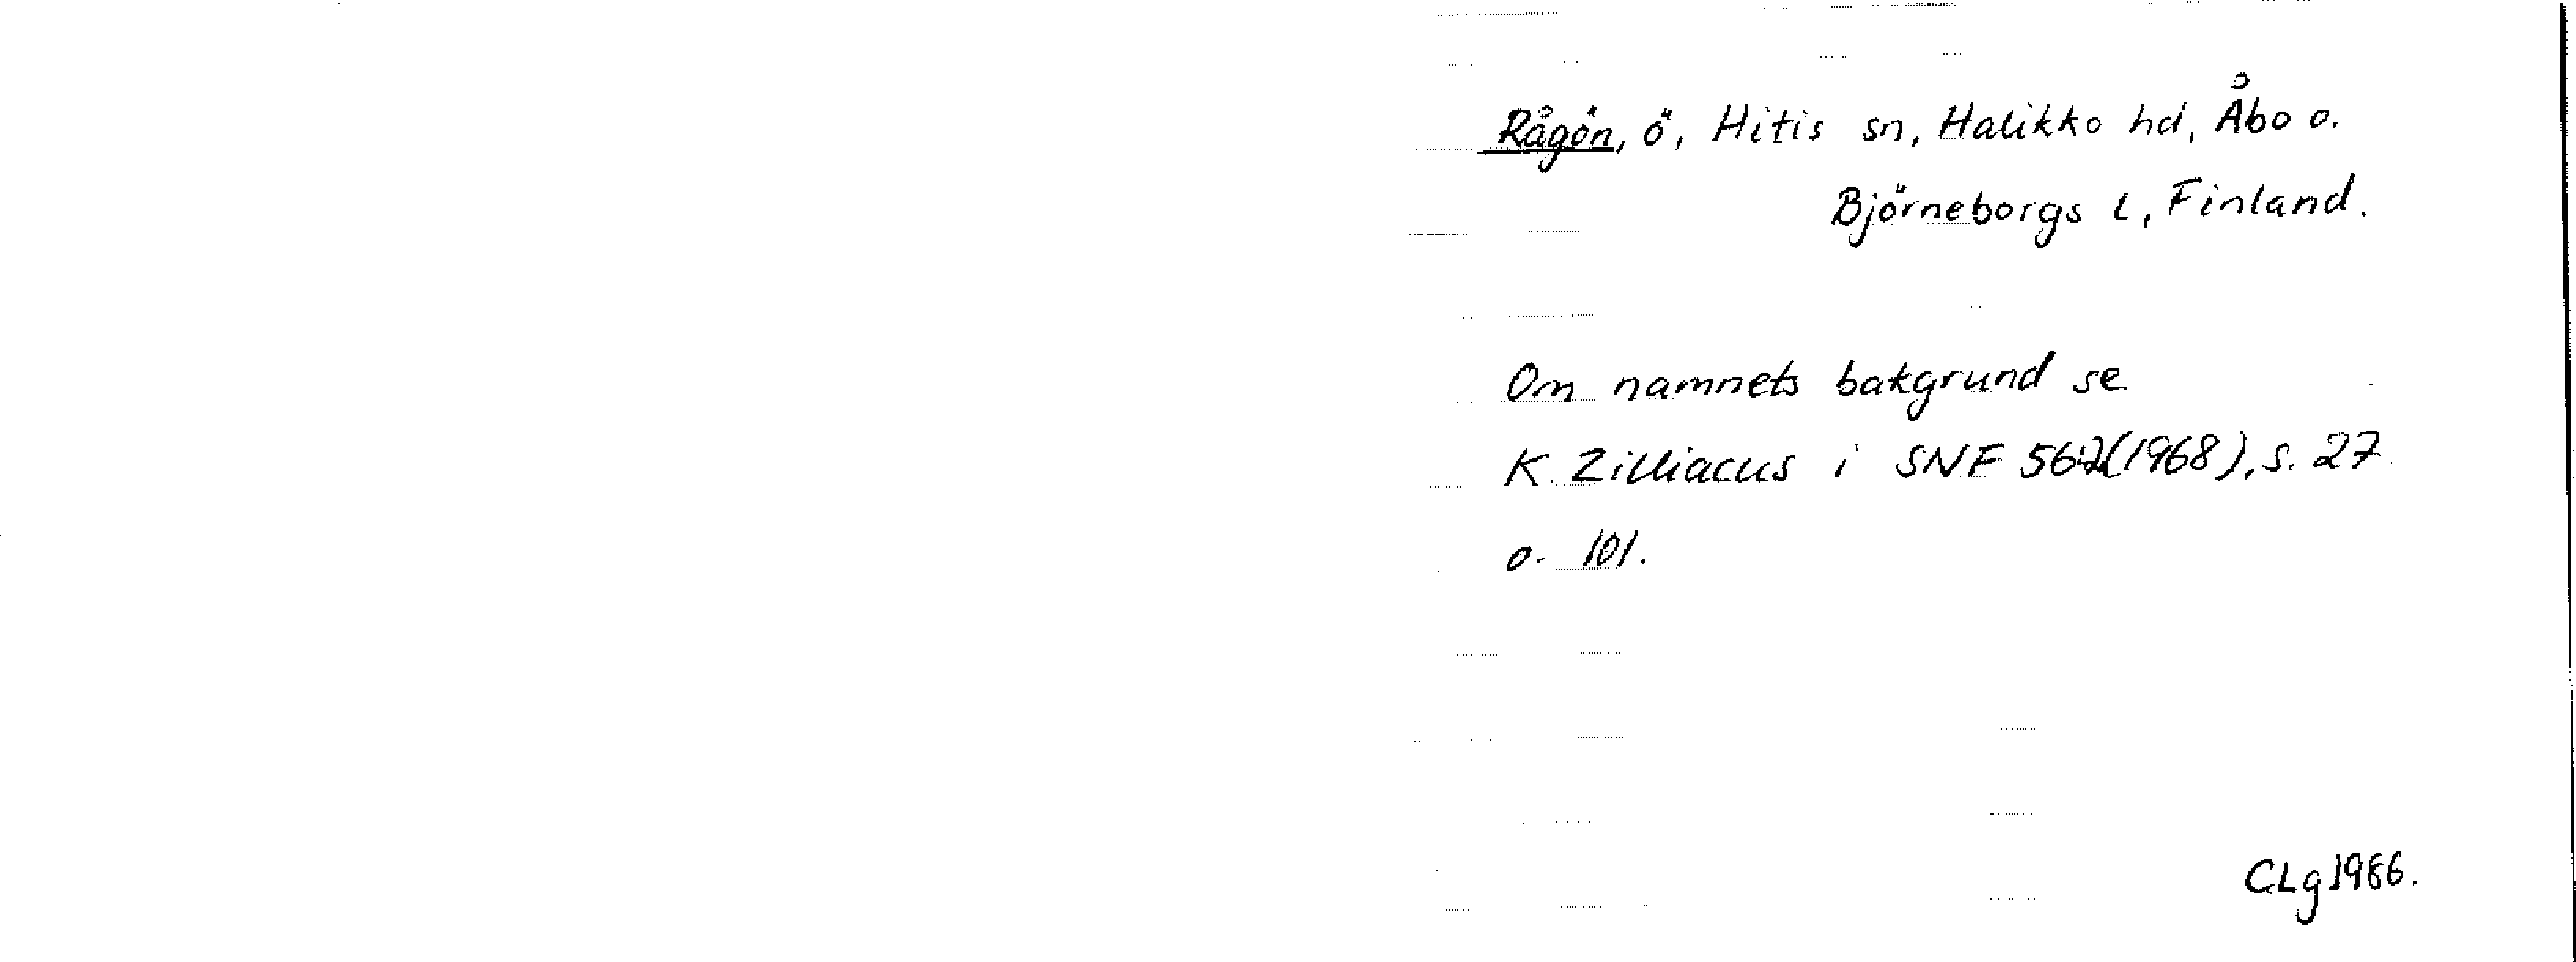 Rågön, ö, Hitis sn, Halikko hd, Åbo o.
Björneborgs l, Finland.
Om namnets bakgrund se
K. Zilliacus i SNF 56:2(1968), s. 27
o. 101.
CLg 1986.